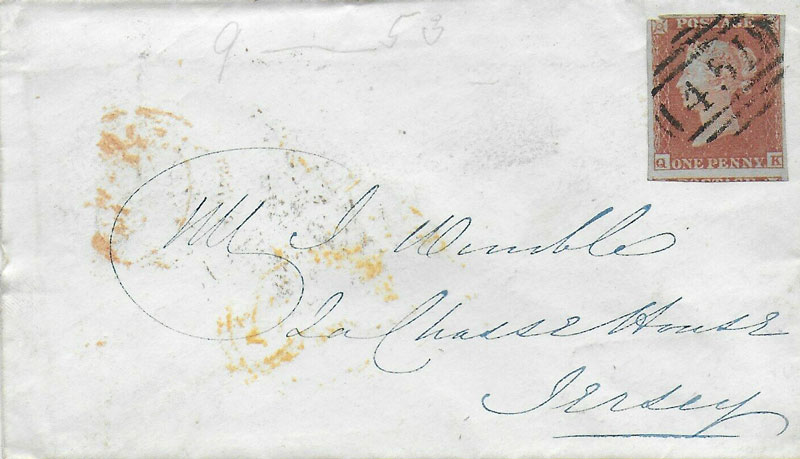 9 — 53
POSTAGE
45
Q ONE PENNY K
I Wimble
La Chasse House
Jersey